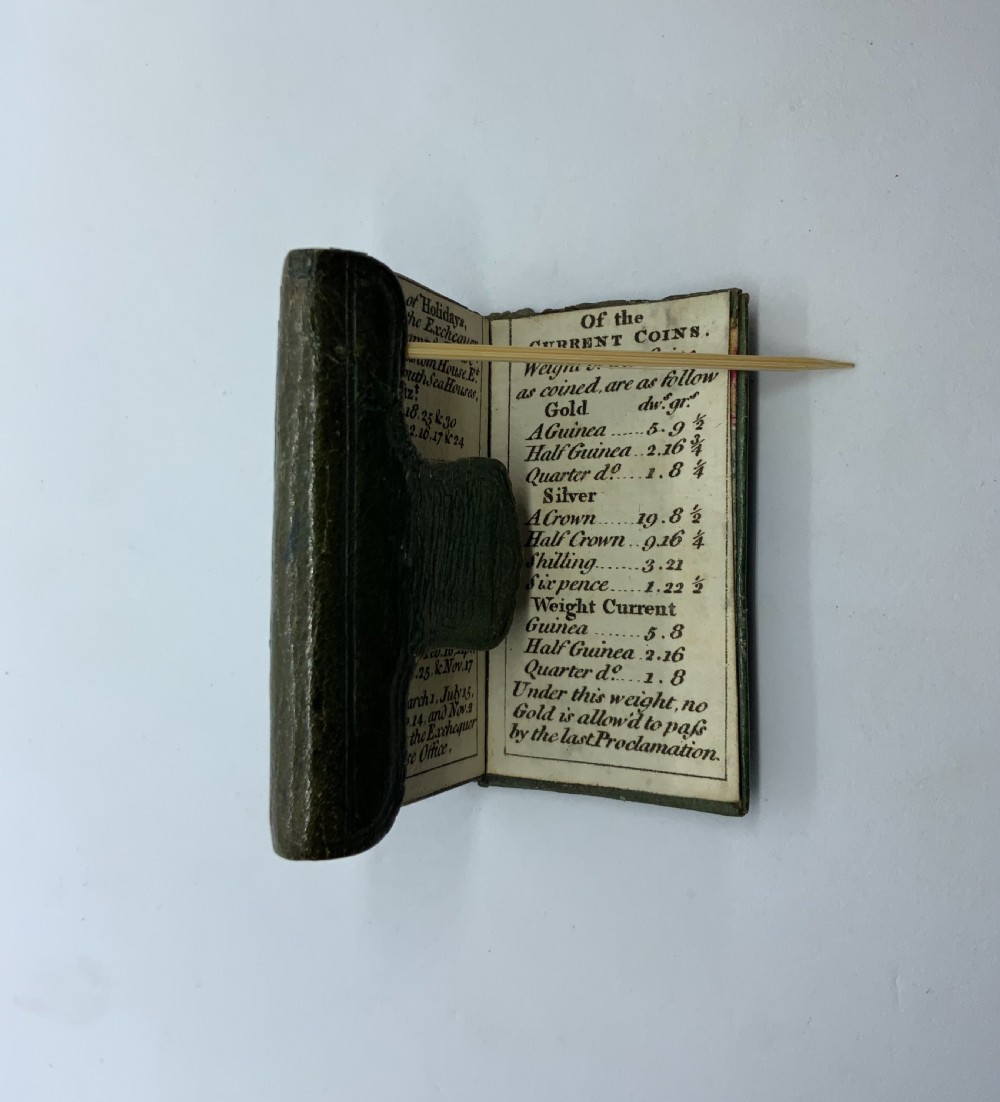 of Holidays,
the Exchequer
Custom House, E.t
South Sea Houses,
18.25 & 30
2.16.17 & 24
.25, & Nov. 17
March 1, July 15,
14, and Nov. 2
the Exchequer
Office.
Of the
CURRENT COINS.
Weight
as coined, are as follow
Gold dw.ts gr.s
A Guinea ...... 5. 9 1/2
Half Guinea .. 2.16 3/4
Quarter d.o .... 1. 8 1/4
Silver
A Crown ...... 19. 8 1/2
Half Crown .. 9.16 1/4
Shilling ....... 3.21
Six pence ..... 1.22 1/2
Weight Current
Guinea ....... 5.8
Half Guinea 2.16
Quarter d.o .... 1.8
Under this weight, no
Gold is allow'd to paſs
by the last Proclamation.